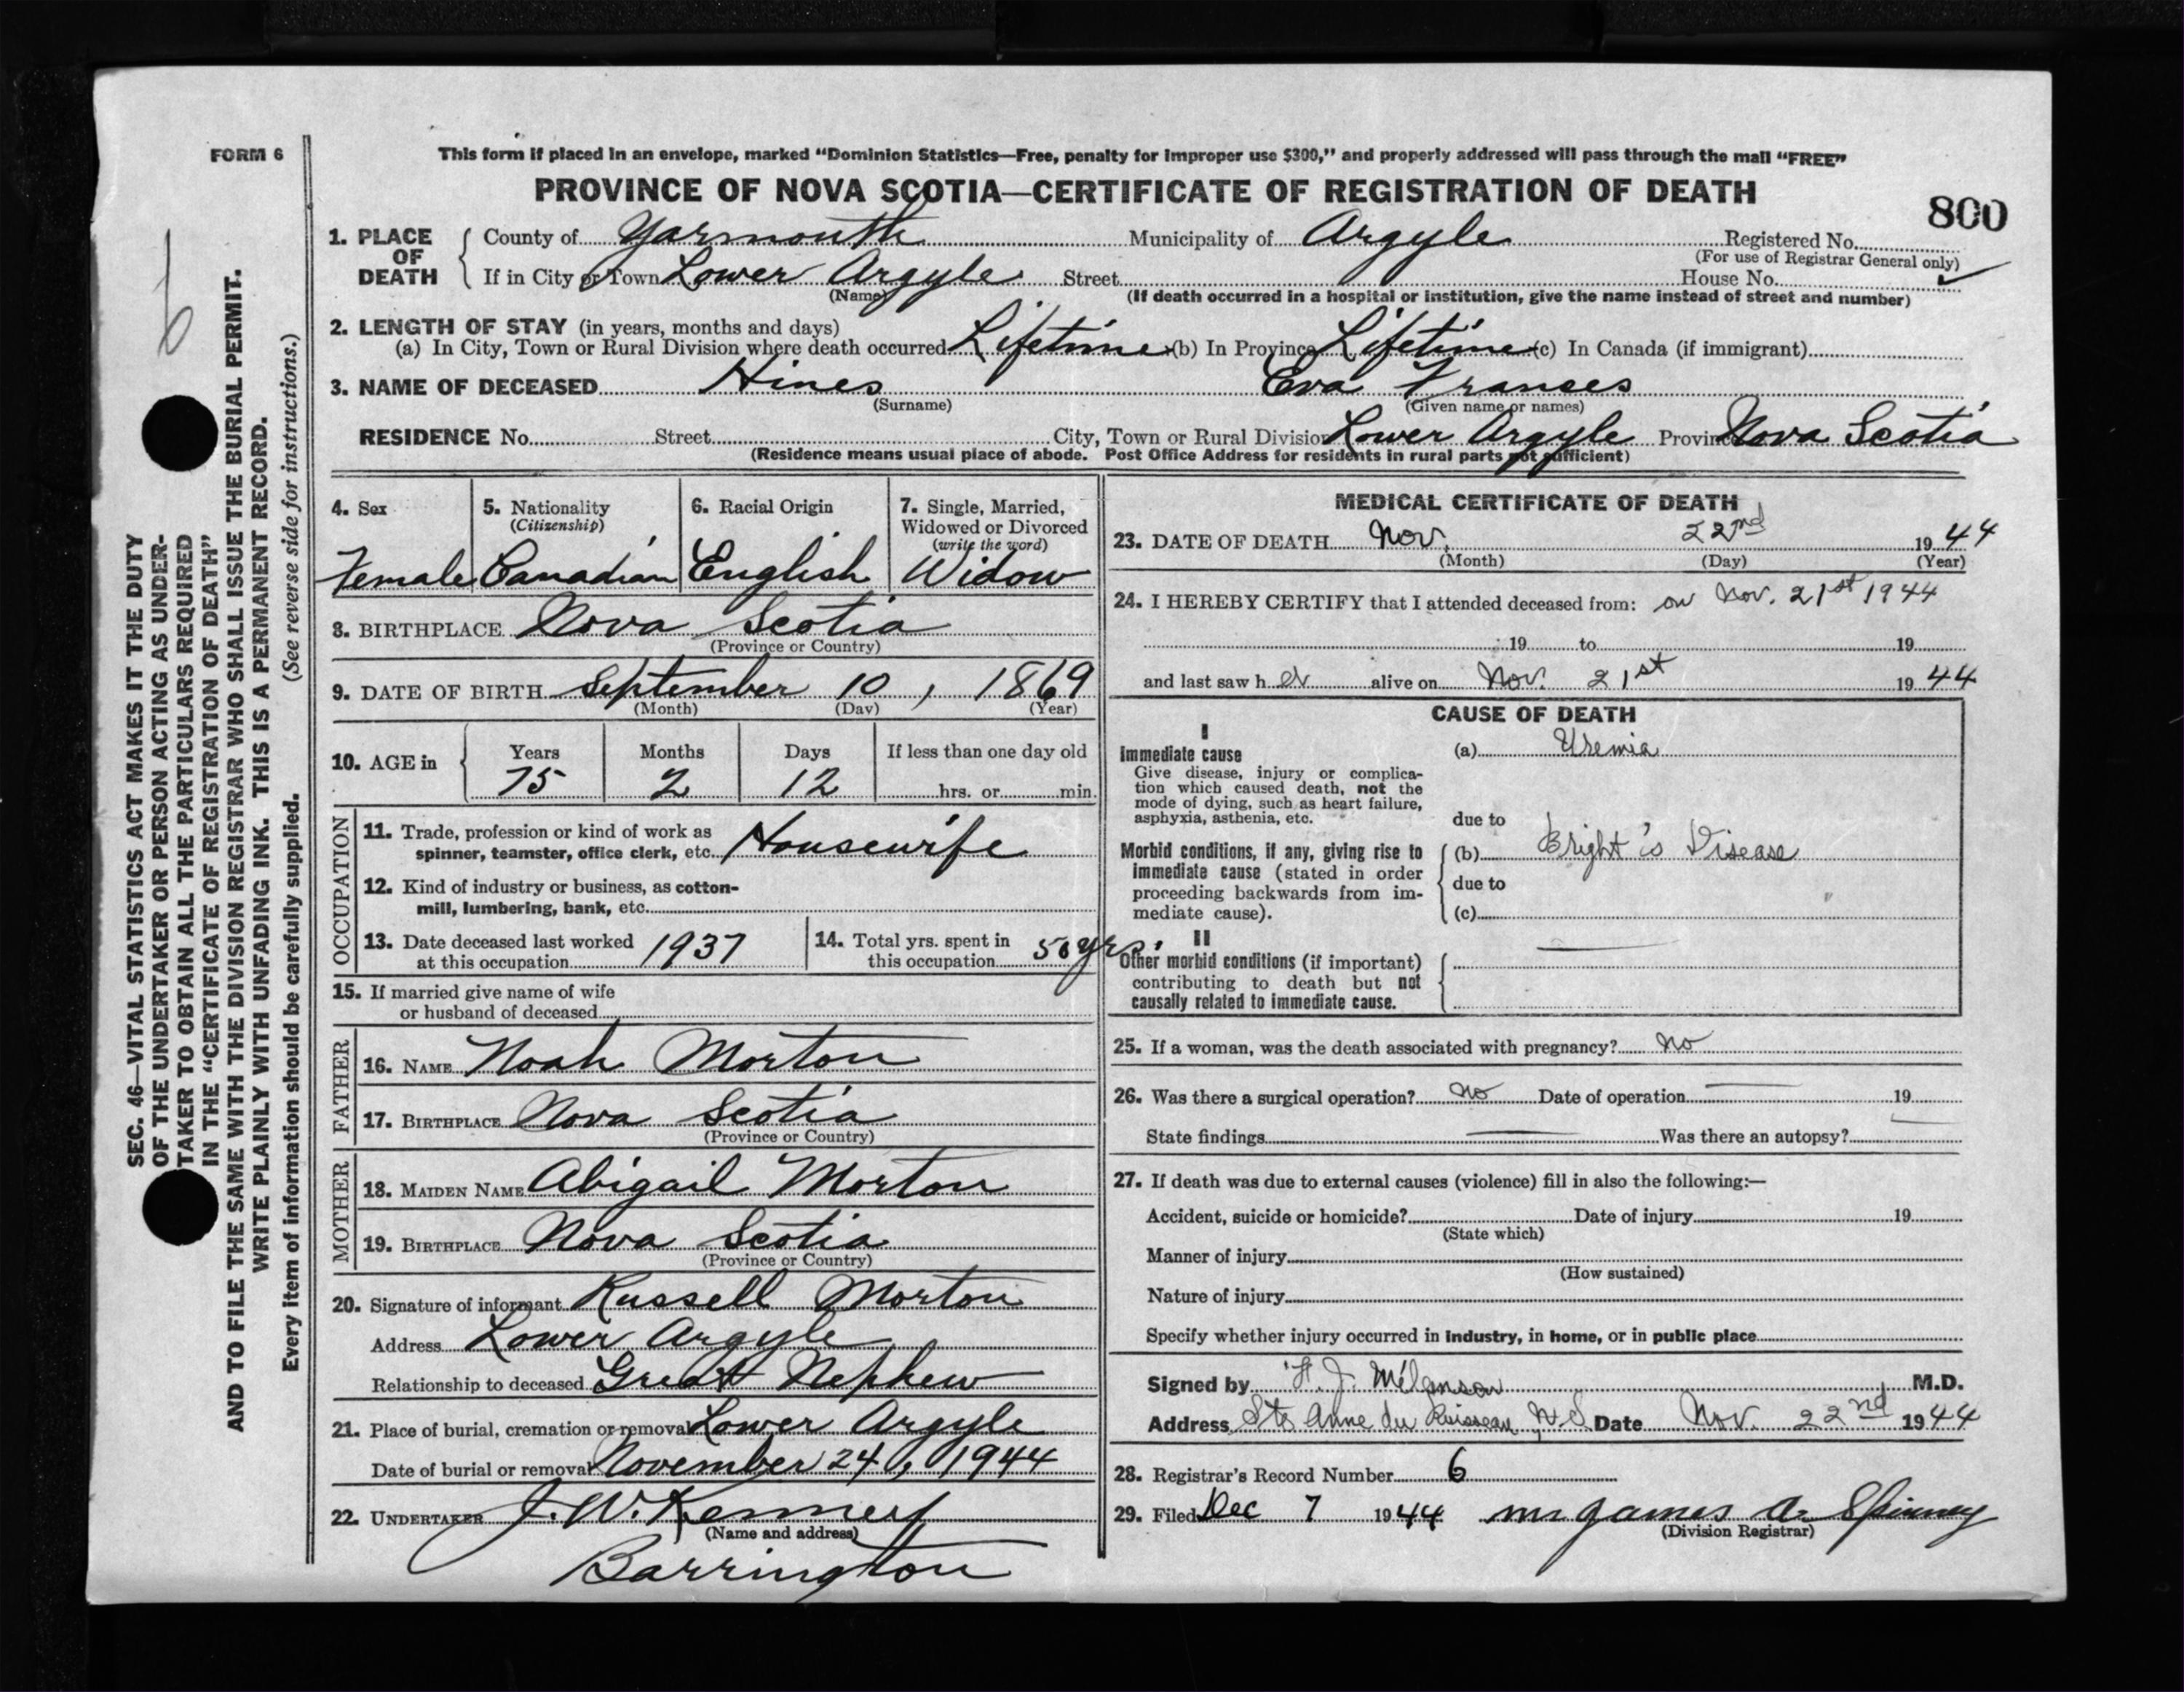 FORM 6
This form if placed in an envelope, marked “Dominion Statistics—Free, penalty for improper use $300,” and properly addressed will pass through the mail “FREE”
PROVINCE OF NOVA SCOTIA—CERTIFICATE OF REGISTRATION OF DEATH
800
1. PLACE OF DEATH { County of Yarmouth Municipality of Argyle Registered No.
(For use of Registrar General only)
If in City or Town Lower Argyle Street House No.
(Name) (If death occurred in a hospital or institution, give the name instead of street and number)
2. LENGTH OF STAY (in years, months and days)
(a) In City, Town or Rural Division where death occurred Lifetime (b) In Province Lifetime (c) In Canada (if immigrant)
3. NAME OF DECEASED Hines Eva Frances
(Surname) (Given name or names)
RESIDENCE No. Street City, Town or Rural Division Lower Argyle Province Nova Scotia
(Residence means usual place of abode. Post Office Address for residents in rural parts not sufficient)
4. Sex
Female
5. Nationality
(Citizenship)
Canadian
6. Racial Origin
English
7. Single, Married,
Widowed or Divorced
(write the word)
Widow
8. BIRTHPLACE Nova Scotia
(Province or Country)
9. DATE OF BIRTH September 10, 1869
(Month) (Day) (Year)
10. AGE in { Years Months Days If less than one day old
75 2 12 hrs. or min.
OCCUPATION
11. Trade, profession or kind of work as
spinner, teamster, office clerk, etc. Housewife
12. Kind of industry or business, as cotton-
mill, lumbering, bank, etc.
13. Date deceased last worked
at this occupation 1937
14. Total yrs. spent in
this occupation 50 yrs.
15. If married give name of wife
or husband of deceased
FATHER
16. NAME Noah Morton
17. BIRTHPLACE Nova Scotia
(Province or Country)
MOTHER
18. MAIDEN NAME Abigail Morton
19. BIRTHPLACE Nova Scotia
(Province or Country)
20. Signature of informant Russell Morton
Address Lower Argyle
Relationship to deceased Great Nephew
21. Place of burial, cremation or removal Lower Argyle
Date of burial or removal November 24, 1944
22. UNDERTAKER J. W. Kenney
(Name and address)
Barrington
MEDICAL CERTIFICATE OF DEATH
23. DATE OF DEATH Nov. 22nd 1944
(Month) (Day) (Year)
24. I HEREBY CERTIFY that I attended deceased from: on Nov. 21st 1944
19 to 19
and last saw her alive on Nov. 21st 1944
CAUSE OF DEATH
I
Immediate cause
Give disease, injury or complica-
tion which caused death, not the
mode of dying, such as heart failure,
asphyxia, asthenia, etc.
(a) Uremia
due to
Morbid conditions, if any, giving rise to
immediate cause (stated in order
proceeding backwards from im-
mediate cause).
(b) Bright's Disease
due to
(c)
II
Other morbid conditions (if important)
contributing to death but not
causally related to immediate cause.
25. If a woman, was the death associated with pregnancy? No
26. Was there a surgical operation? No Date of operation 19
State findings Was there an autopsy?
27. If death was due to external causes (violence) fill in also the following:—
Accident, suicide or homicide? Date of injury 19
(State which)
Manner of injury
(How sustained)
Nature of injury
Specify whether injury occurred in industry, in home, or in public place
Signed by H. J. Melanson M.D.
Address Ste Anne du Ruisseau, N.S. Date Nov. 22nd 1944
28. Registrar's Record Number 6
29. Filed Dec 7 1944 Mr James A. Spinney
(Division Registrar)
6
SEC. 46—VITAL STATISTICS ACT MAKES IT THE DUTY
OF THE UNDERTAKER OR PERSON ACTING AS UNDER-
TAKER TO OBTAIN ALL THE PARTICULARS REQUIRED
IN THE “CERTIFICATE OF REGISTRATION OF DEATH”
AND TO FILE THE SAME WITH THE DIVISION REGISTRAR WHO SHALL ISSUE THE BURIAL PERMIT.
WRITE PLAINLY WITH UNFADING INK. THIS IS A PERMANENT RECORD.
Every item of information should be carefully supplied. (See reverse side for instructions.)